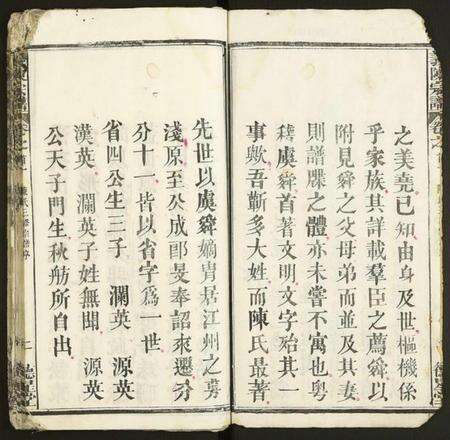 之美堯已知由身及世樞機係
乎家族其詳載羣臣之薦舜以
附見舜之父母弟而並及其妻
則譜牒之體亦未嘗不寓也粤
稽虞舜首著文明文字殆其一
事歟吾蘄多大姓而陳氏最著
先世以虞舜嫡胄居江州之義
淺原至公成郎旻奉詔來遷分
分十一皆以省字為一世
省四公生三子 瀾英 源英
漢英 瀾英子姓無聞 源英
公天子門生秋舫所自出